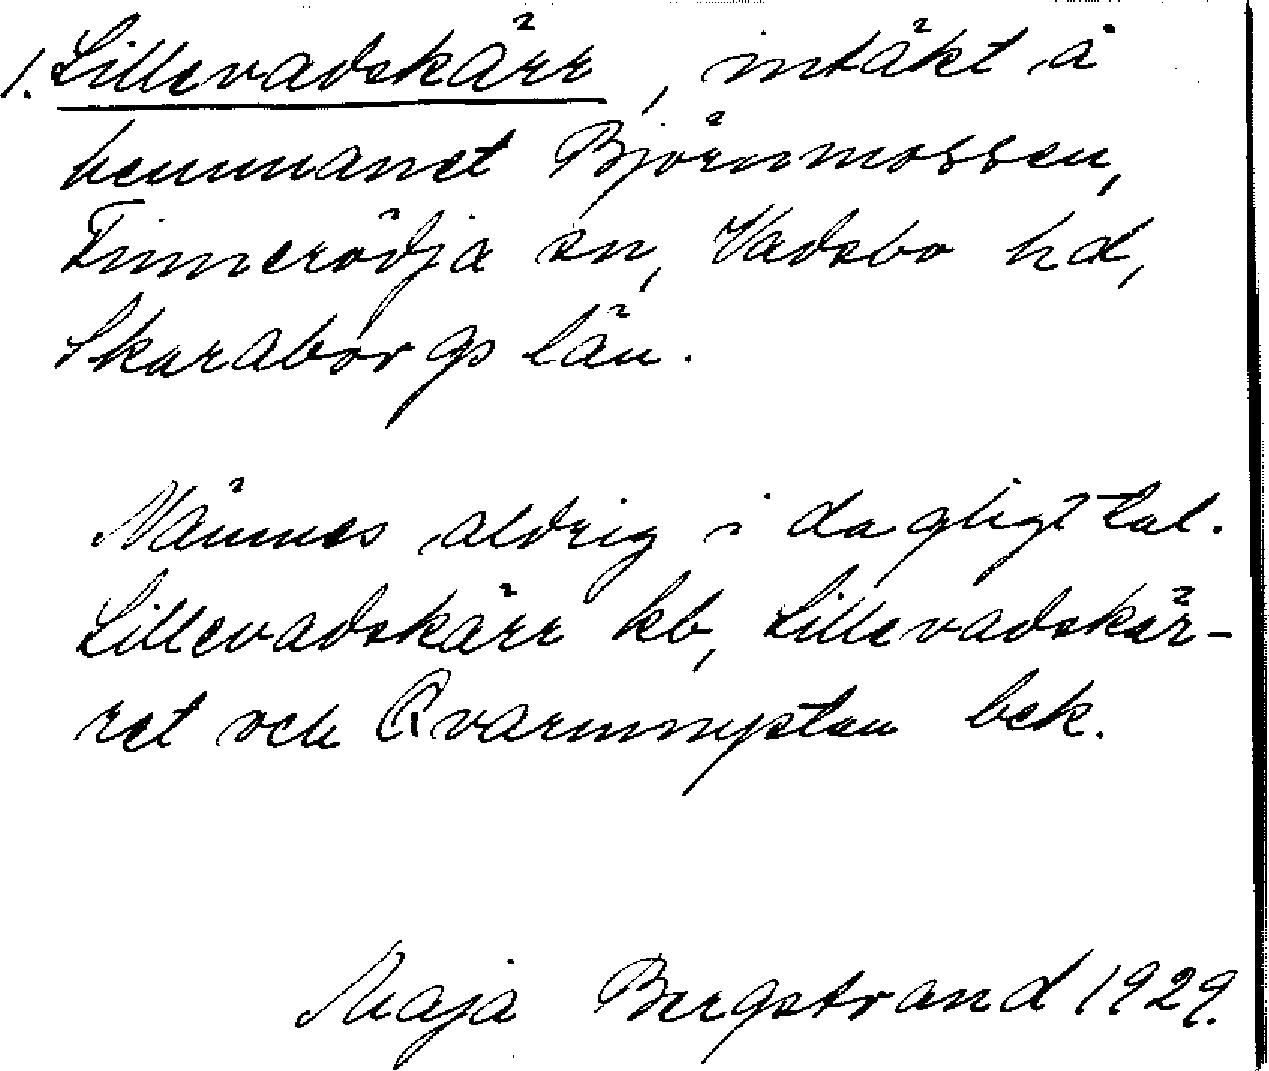 1. Lillevadskärr, intäkt å
hemmanet Björnmossen,
Finnerödja sn, Vadsbo hd,
Skaraborgs län.
Nämnes aldrig i dagligt tal.
Lillevadskärr kb, Lillevadskär-
ret och Qvarnnysten bek.
Maja Bergstrand 1929.